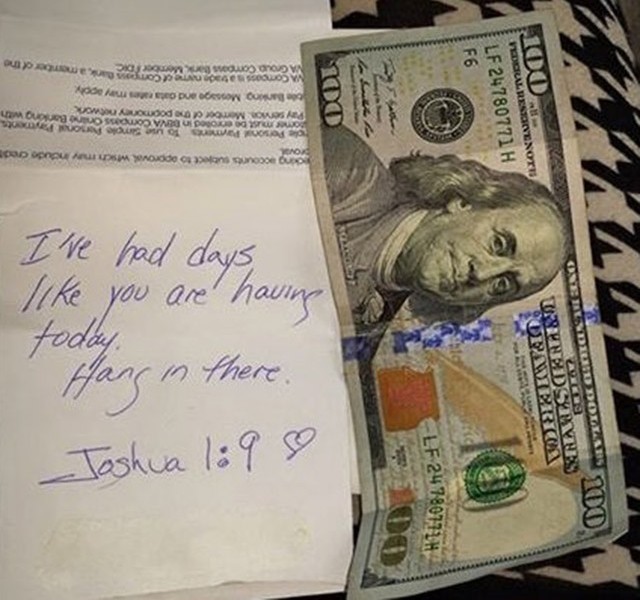 I've had days
like you are having
today.
Hang in there.
Joshua 1:9 ♡
king accounts subject to approval, which may include credit
proval.
mple Personal Payments. To use Simple Personal Payments,
tomer must be enrolled in BBVA Compass Online Banking with
Pay service. Member of the popmoney network.
bile Banking. Message and data rates may apply.
VA Compass is a trade name of Compass Bank, a member of the
VA Group. Compass Bank, Member FDIC.
100
FEDERAL RESERVE NOTE
LF 24780771 H
F6
100
UNITED STATES
OF AMERICA
LF 24780771 H
100
100